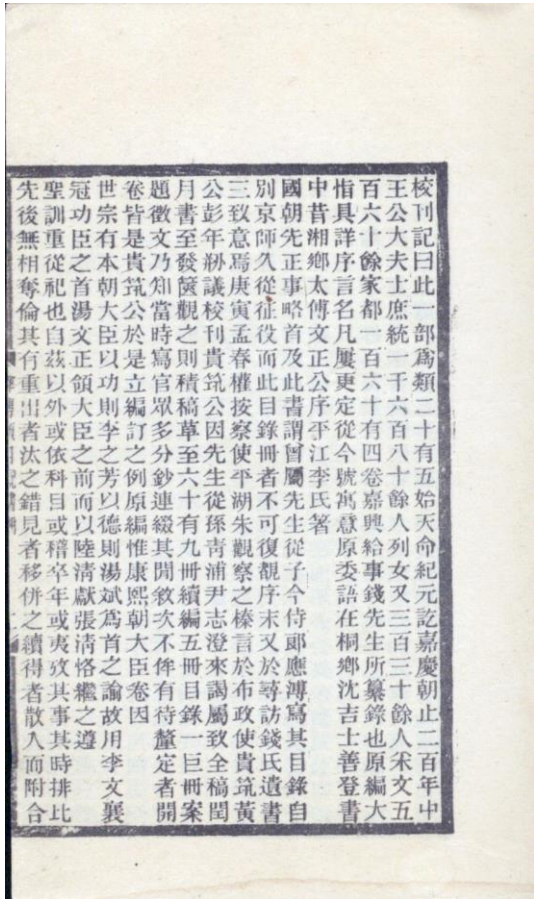 校刊記曰此一部爲類二十有五始天命紀元訖嘉慶朝止二百年中
王公大夫士庶統一千六百八十餘人列女又三百三十餘人宋文五
百六十餘家都一百六十有四卷嘉興給事錢先生所纂錄也原編大
恉具詳序言名凡屢更定從今號寓意原委語在桐鄉沈吉士善登書
中昔湘鄉太傅文正公序平江李氏著
國朝先正事略首及此書謂曾屬先生從子今侍郎應溥寫其目錄自
別京師久從征役而此目錄冊者不可復覩序末又於尋訪錢氏遺書
三致意焉庚寅孟春權按察使平湖朱觀察之榛言於布政使貴筑黃
公彭年刱議校刊貴筑公因先生從孫青浦尹志澄來謁屬致全稿閏
月書至發篋觀之則積稿草至六十有九冊續編五冊目錄一巨冊案
題徵文乃知當時寫官眾多分鈔連綴其閒敘次不侔有待釐定者開
卷皆是貴筑公於是立編訂之例原編惟康熙朝大臣卷因
世宗有本朝大臣以功則李之芳以德則湯斌爲首之諭故用李文襄
冠功臣之首湯文正領大臣之前而以陸清獻張清恪繼之遵
聖訓重從祀也自茲以外或依科目或稽卒年或夷攷其事其時排比
先後無相奪倫其有重出者汰之錯見者移併之續得者散入而附合